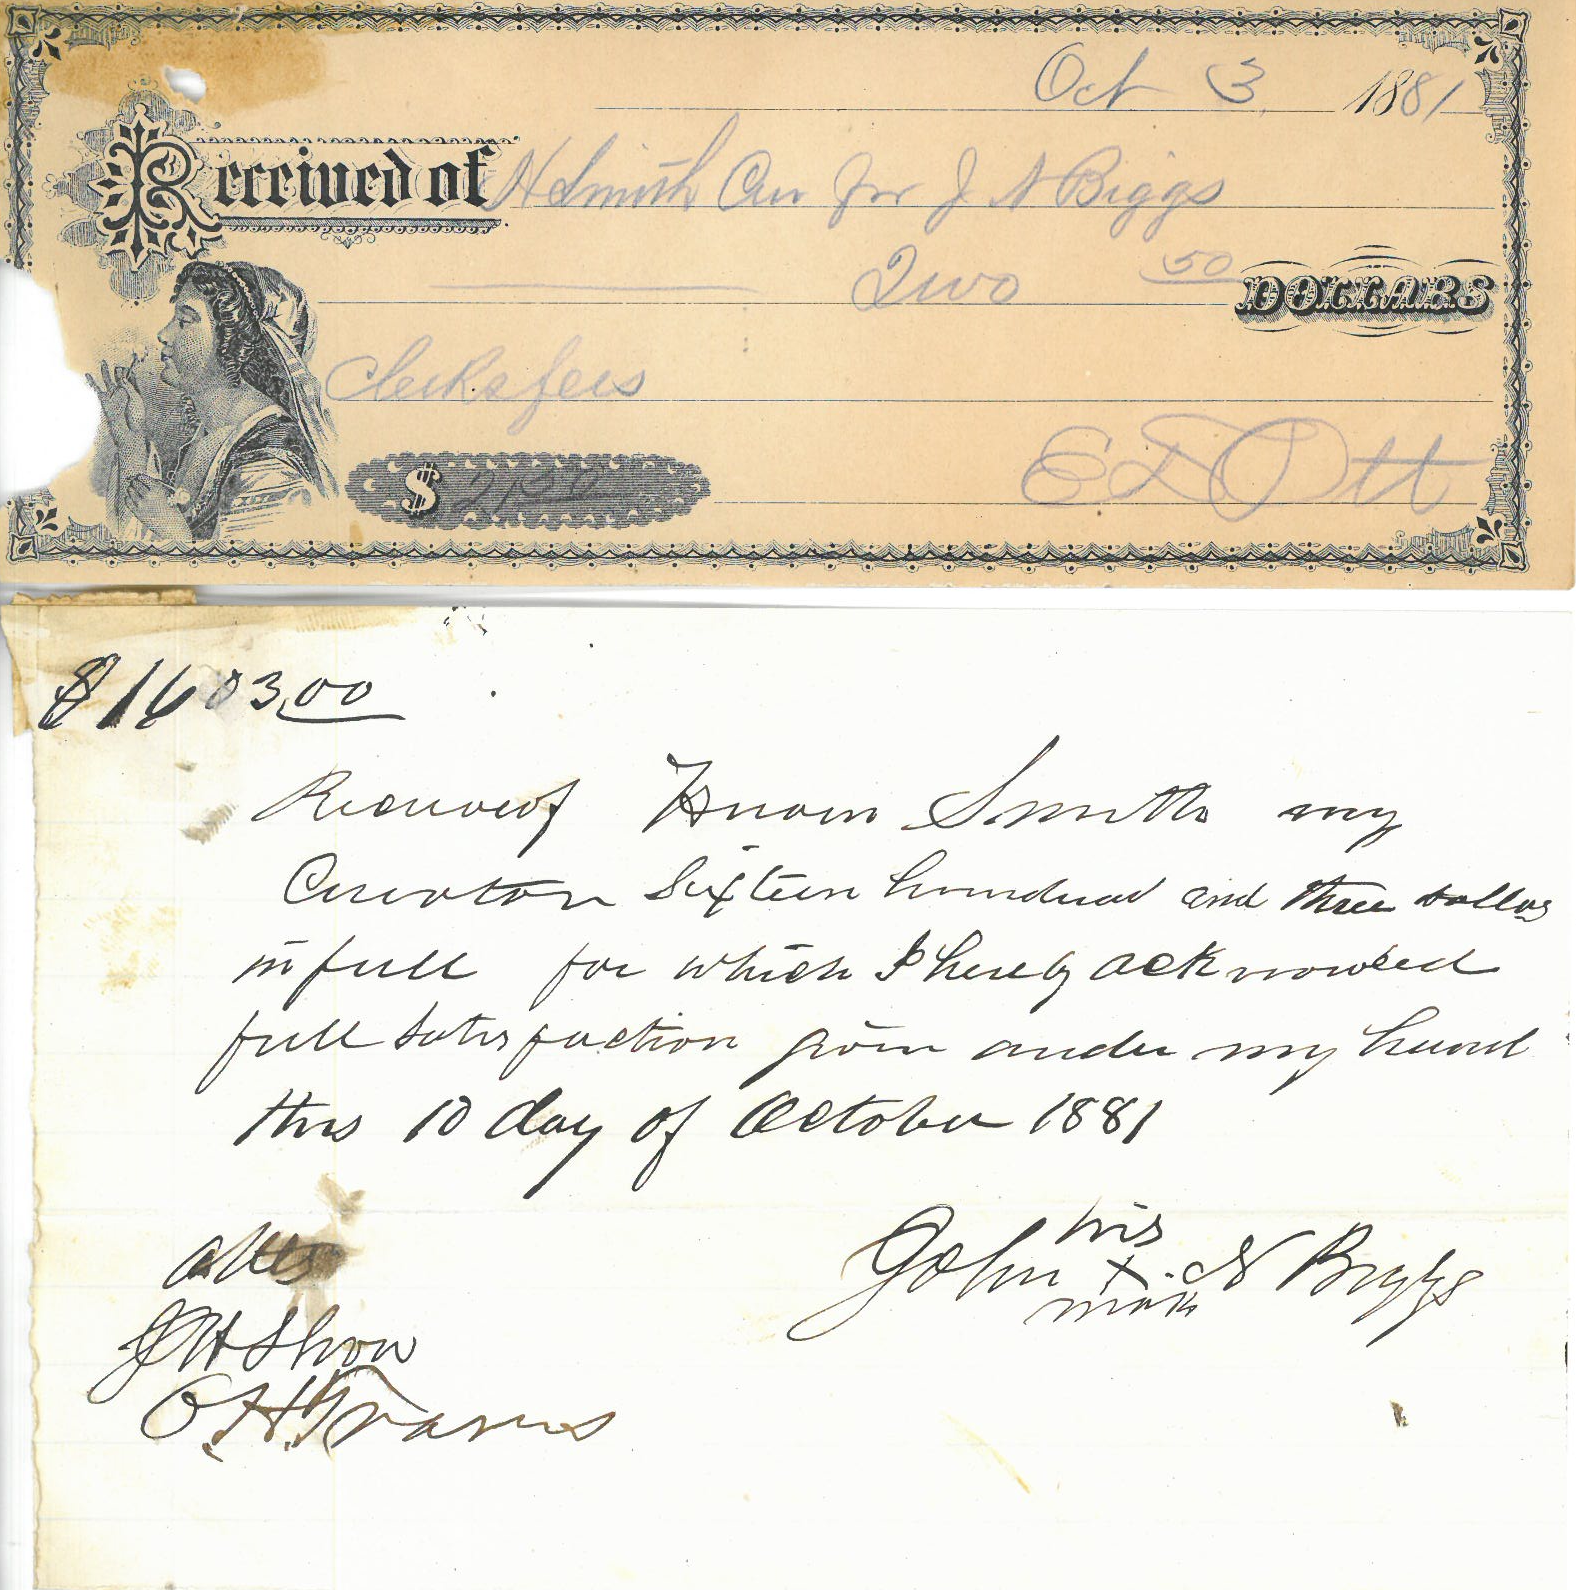 Oct 3 1881
Received of H Smith Cur for J N Biggs
Two 50 DOLLARS
Clerks fees
$ 2,50
E D Ott
$1603.00
Recived of Hiram Smith my
Curator Sixteen hundred and three dollars
in full for which I hereby acknowled
full satisfaction given under my hand
this 10 day of October 1881
attes
his
John X N Biggs
mark
J H Show